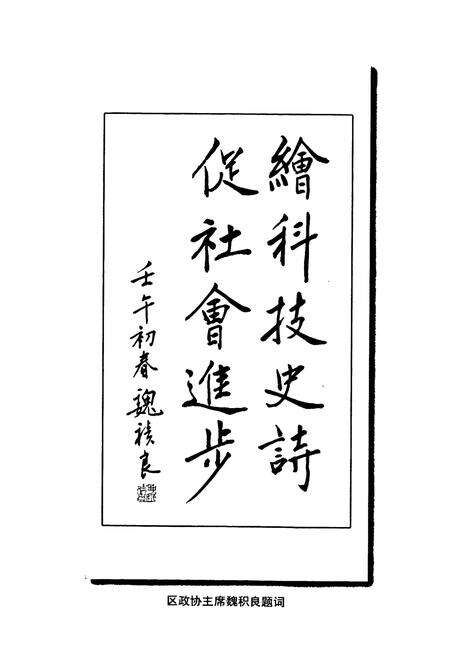 繪科技史詩
促社會進步
壬午初春 魏積良
区政协主席魏积良题词